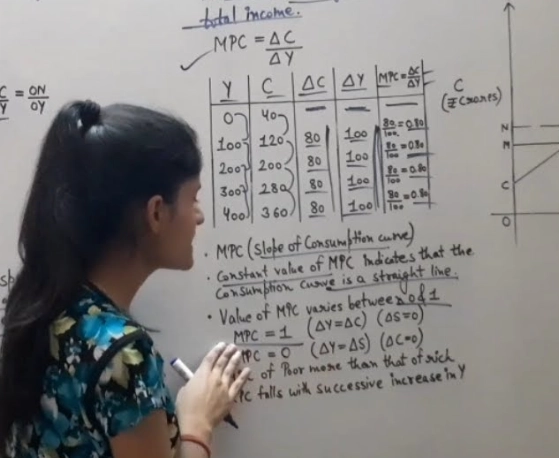 total income.
MPC = ΔC/ΔY
C/Y = ON/OY
Y C ΔC ΔY MPC = ΔC/ΔY
0 40 — — —
100 120 80 100 80/100 = 0.80
200 200 80 100 80/100 = 0.80
300 280 80 100 80/100 = 0.80
400 360 80 100 80/100 = 0.80
C
(₹ Crores)
N
M
C
O
• MPC (Slope of Consumption curve)
• Constant value of MPC indicates that the
Consumption Curve is a straight line.
• Value of MPC varies between 0 & 1
MPC = 1 (ΔY=ΔC) (ΔS=0)
MPC = 0 (ΔY=ΔS) (ΔC=0)
of Poor more than that of rich
PC falls with successive increase in Y